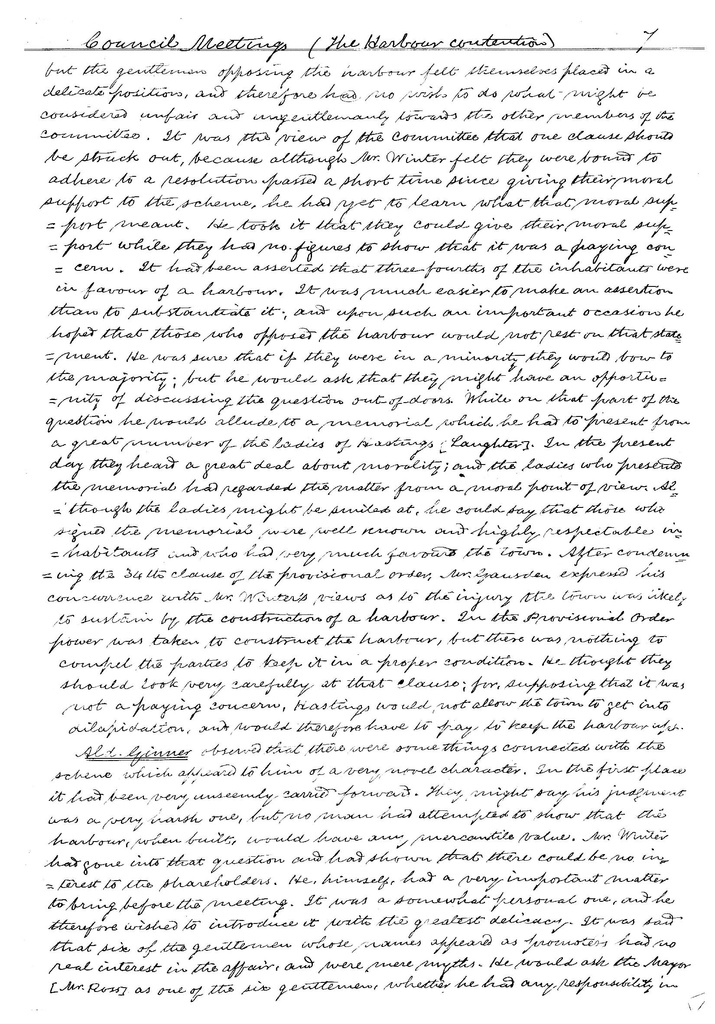 Council Meetings (The Harbour contention) 7
but the gentlemen opposing the harbour felt themselves placed in a
delicate position, and therefore had no wish to do what might be
considered unfair and ungentlemanly towards the other members of the
committee. It was the view of the committee that one clause should
be struck out, because although Mr. Winter felt they were bound to
adhere to a resolution passed a short time since giving their moral
support to the scheme, he had yet to learn what that moral sup=
=port meant. He took it that they could give their moral sup=
=port while they had no figures to show that it was a paying con=
=cern. It had been asserted that three fourths of the inhabitants were
in favour of a harbour. It was much easier to make an assertion
than to substantiate it; and upon such an important occasion he
hoped that those who opposed the harbour would not rest on that state
=ment. He was sure that if they were in a minority they would bow to
the majority; but he would ask that they might have an opportu=
=nity of discussing the question out of doors. While on that part of the
question he would allude to a memorial which he had to present from
a great number of the ladies of Hastings [Laughter]. In the present
day they heard a great deal about morality; and the ladies who presented
the memorial had regarded the matter from a moral point of view. Al=
=though the ladies might be smiled at, he could say that those who
signed the memorial were well known and highly respectable in=
=habitants and who had very much favoured the town. After condemn
=ing the 34th clause of the provisional order, Mr. Gausden expressed his
concurrence with Mr. Winter's views as to the injury the town was likely
to sustain by the construction of a harbour. In the Provisional Order
power was taken to construct the harbour, but there was nothing to
compel the parties to keep it in a proper condition. He thought they
should look very carefully at that clause; for, supposing that it was
not a paying concern, Hastings would not allow the town to get into
dilapidation, and would therefore have to pay to keep the harbour up.
Ald. Ginner observed that there were some things connected with the
scheme which appeared to him of a very novel character. In the first place
it had been very unseemly carried forward. They might say his judgment
was a very harsh one, but no man had attempted to show that the
harbour, when built, would have any mercantile value. Mr. Winter
had gone into that question and had shown that there could be no in
=terest to the shareholders. He, himself, had a very important matter
to bring before the meeting. It was a somewhat personal one, and he
therefore wished to introduce it with the greatest delicacy. It was said
that six of the gentlemen whose names appeared as promoters had no
real interest in the affair, and were mere myths. He would ask the Mayor
[Mr. Ross] as one of the six gentlemen, whether he had any responsibility in